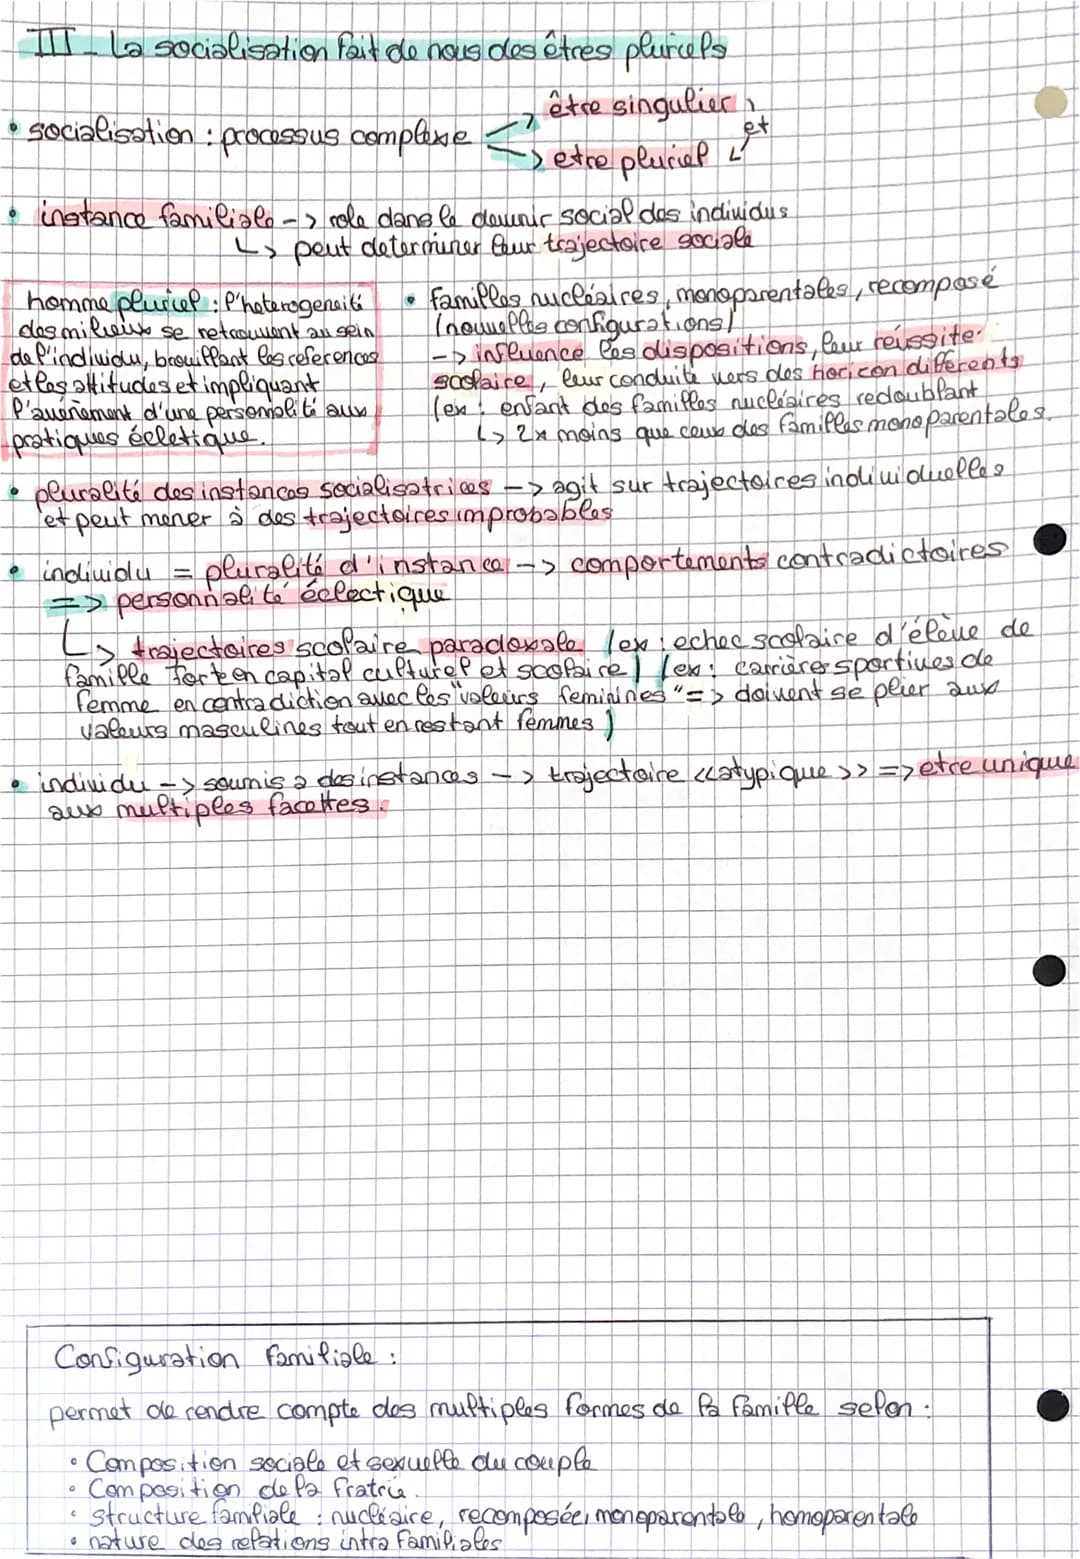 III - La socialisation fait de nous des êtres pluriels
• socialisation : processus complexe
-> être singulier
et
-> etre pluriel
• instance familiale -> role dans le devenir social des individus
↳ peut determiner leur trajectoire sociale
homme pluriel : l'heterogeneité
des milieux se retrouvent au sein
de l'individu, brouillant les references
et les attitudes et impliquant
l'avénement d'une personnalité aux
pratiques écletique.
• familles nucléaires, monoparentales, recomposé
(nouvelles configurations)
-> influence les dispositions, leur réussite
scolaire, leur conduite vers des horizon différents
(ex : enfant des familles nucléaires redoublant
↳ 2x moins que ceux des familles monoparentales.
• pluralité des instances socialisatrices -> agit sur trajectoires individuelles
et peut mener à des trajectoires improbables
• individu = pluralité d'instance -> comportements contradictoires
=> personnalité éclectique
↳ trajectoires scolaire paradoxale (ex : echec scolaire d'élève de
famille forte en capital culturel et scolaire) (ex : carrières sportives de
femme en contradiction avec les "valeurs feminines" => doivent se plier aux
valeurs masculines tout en restant femmes)
• individu -> soumis a des instances -> trajectoire <<atypique>> => etre unique
aux multiples facettes.
Configuration familiale :
permet de rendre compte des multiples formes de la famille selon :
• Composition sociale et sexuelle du couple
• Composition de la fratrie.
• structure familiale : nucléaire, recomposée, monoparentale, homoparentale
• nature des relations intra familiales